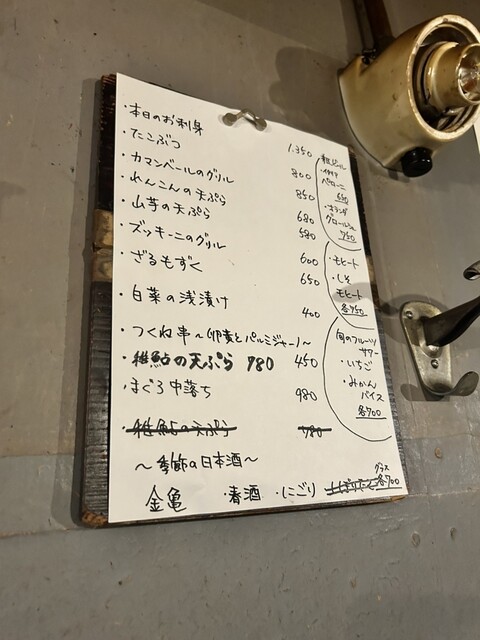 ・本日のお刺身 1.350
・たこぶつ 800
・カマンベールのグリル 850
・れんこんの天ぷら 680
・山芋の天ぷら 580
・ズッキーニのグリル 600
・ざるもずく 650
・白菜の浅漬け 400
・つくね串〜(卵黄とパルミジャーノ)〜 450
・稚鮎の天ぷら 980
・まぐろ中落ち 980
・稚鮎の天ぷら 980
〜季節の日本酒〜
金亀 ・春酒 ・にごり
グラス
各700
瓶ビール
・イタリア
ペローニ
650
・オランダ
グロールシュ
750
・モヒート
・しそ
モヒート
各750
旬のフルーツ
サワー
・いちご
・みかん
パイス
各700